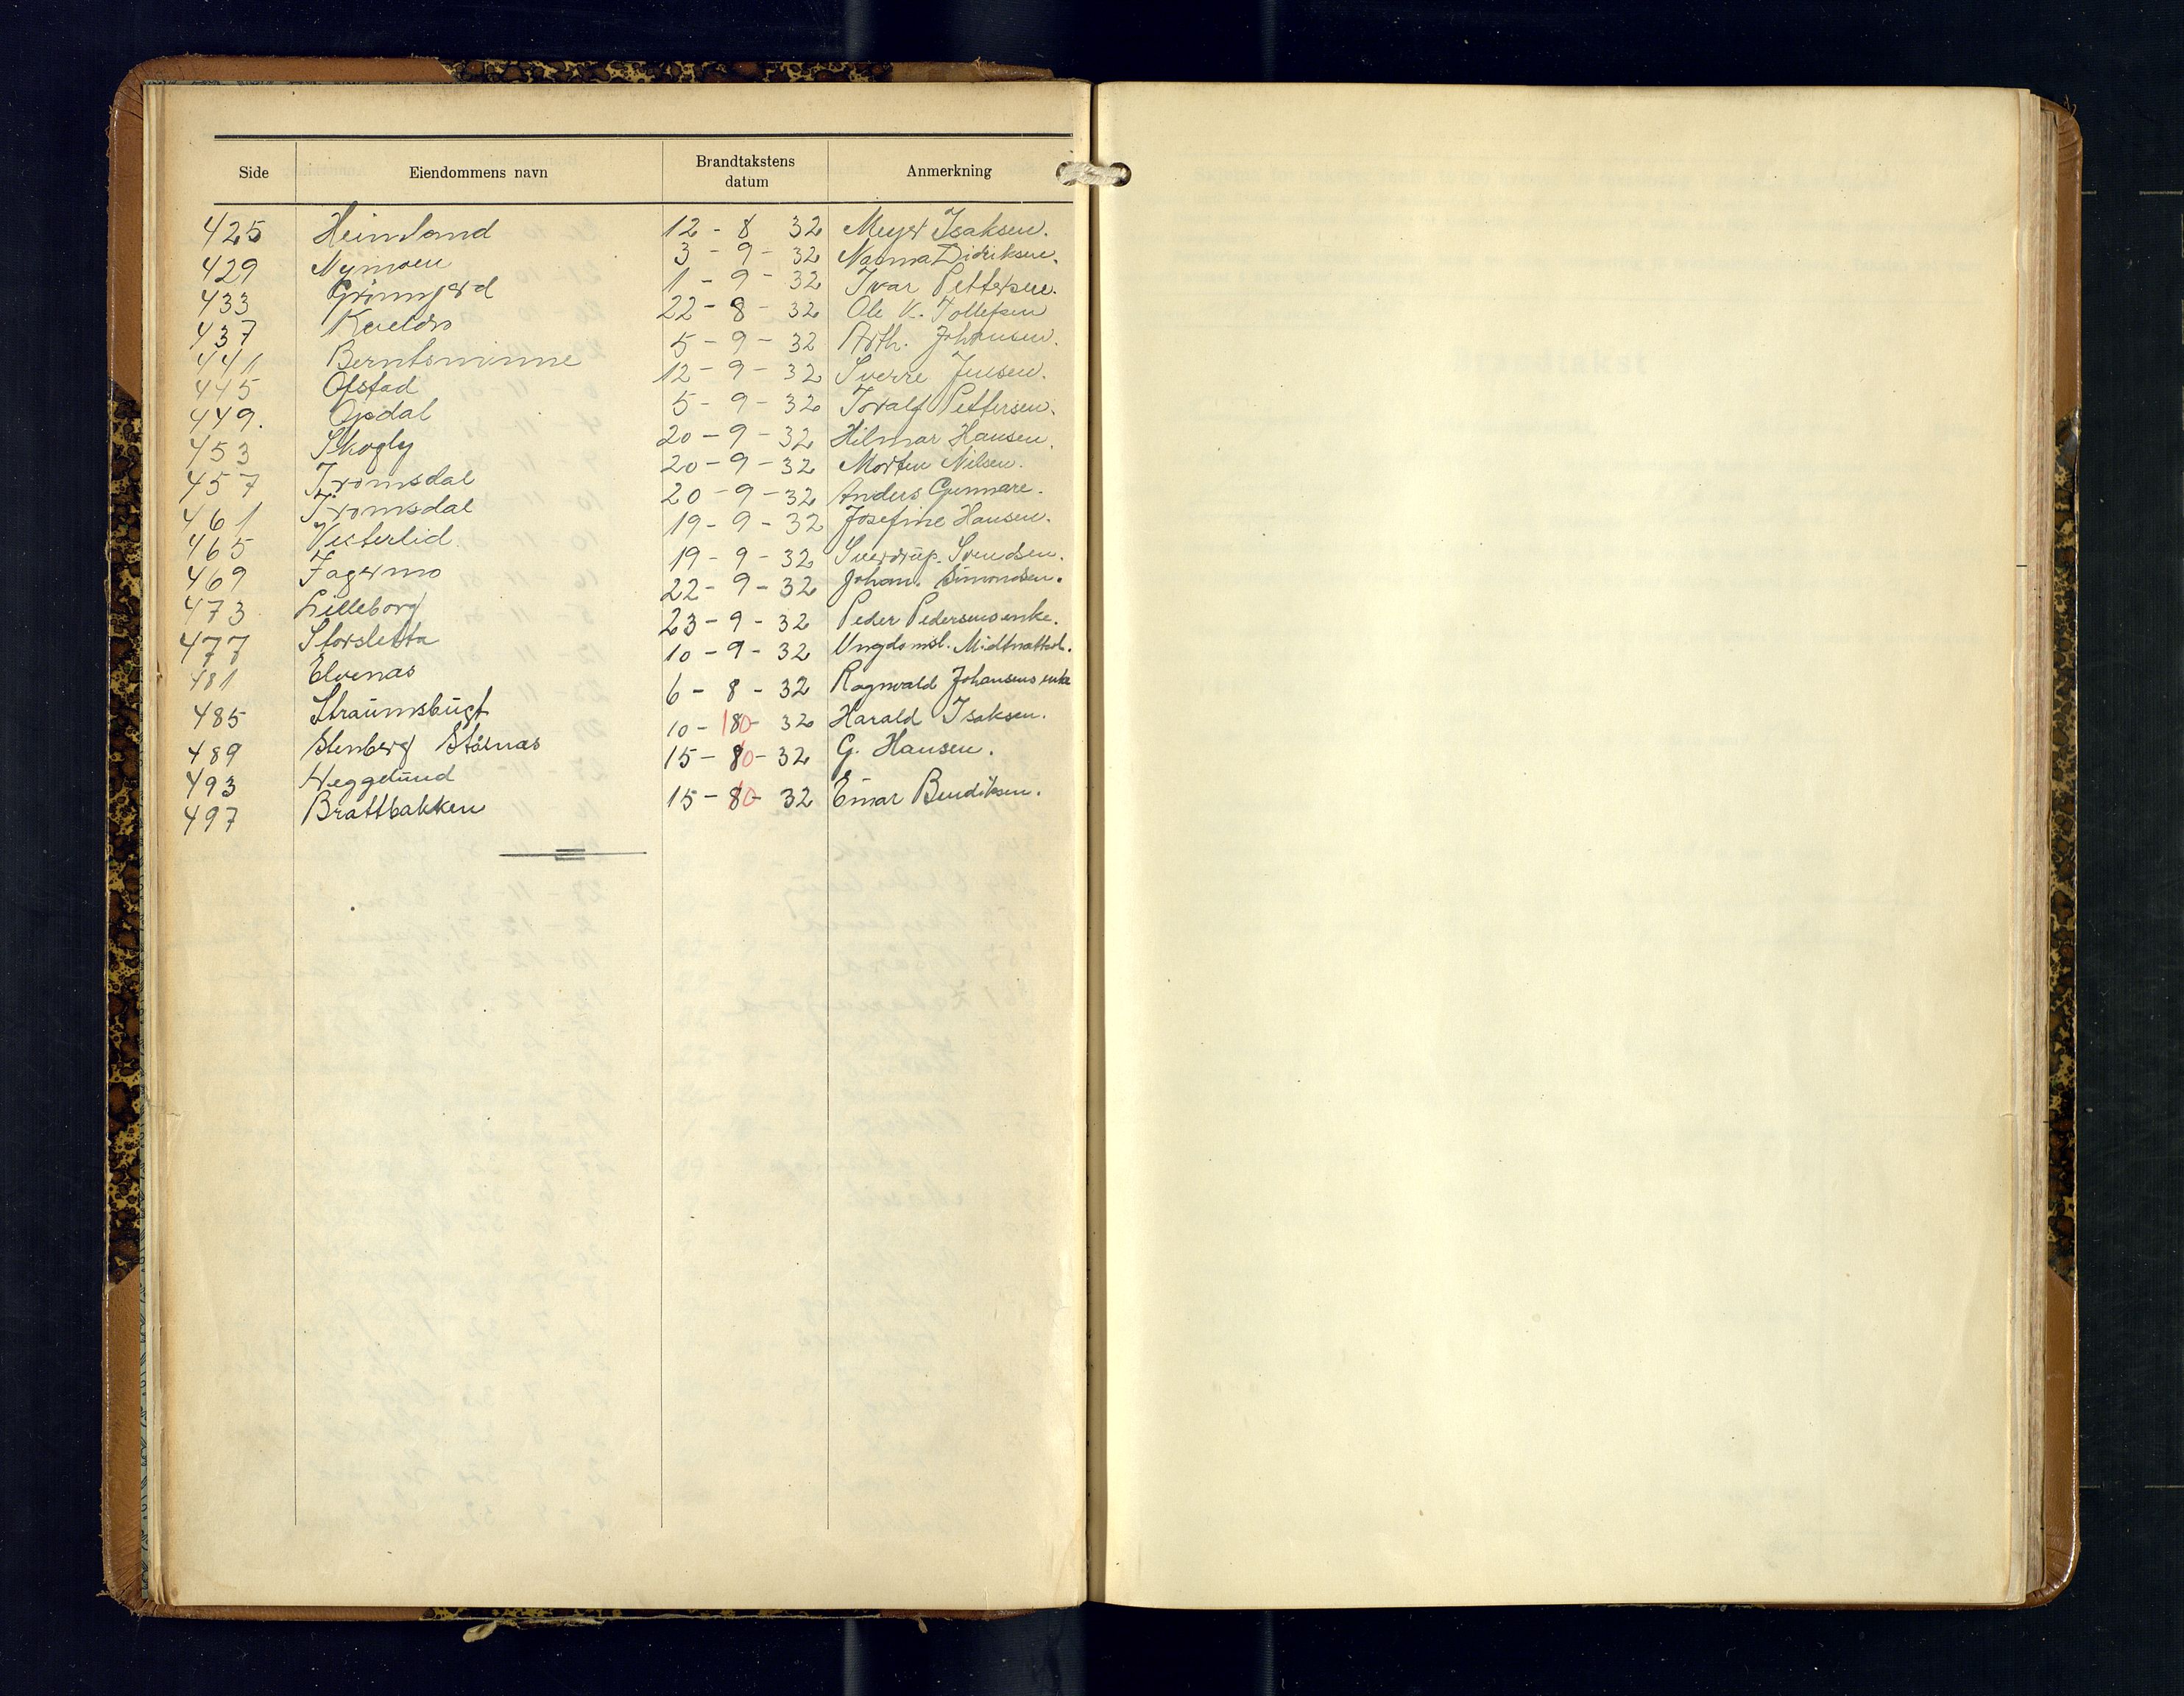 Side Eiendommens navn Brandtakstens datum Anmerkning
425 Heimland 12 - 8 32 Meyer Isaksen.
429 Nymoen 3 - 9 - 32 Nanna Didriksen.
433 Grønnjord 1 - 9 - 32 Ivar Pettersen.
437 Kveldro 22 - 8 - 32 Ole K. Tollefsen
441 Berntsminne 5 - 9 - 32 Arth. Johansen.
445 Ofstad 12 - 9 - 32 Sverre Jensen.
449. Opdal 5 - 9 - 32 Toralf Pettersen.
453 Skogly 20 - 9 - 32 Hilmar Hansen.
457 Tromsdal 20 - 9 - 32 Morten Nilsen.
461 Tromsdal 20 - 9 - 32 Anders Gunnare.
465 Vesterlid. 19 - 9 - 32 Josefine Hansen.
469 Fagermo 19 - 9 - 32 Sverdrup. Svendsen.
473 Lilleborg 22 - 9 - 32 Johan. Simonsen.
477 Storsletta 23 - 9 - 32 Peder Pedersens enke.
481 Elvenas 10 - 9 - 32 Ungdomsl. Midtnattsol.
485 Straumsbugt 6 - 8 - 32 Ragnvald Johansens enke
489 Stenberg Stornas 10 - 10 - 32 Harald Isaksen.
493 Heggelund 15 - 10 - 32 G. Hansen.
497 Brattbakken 15 - 10 - 32 Einar Bendiksen.